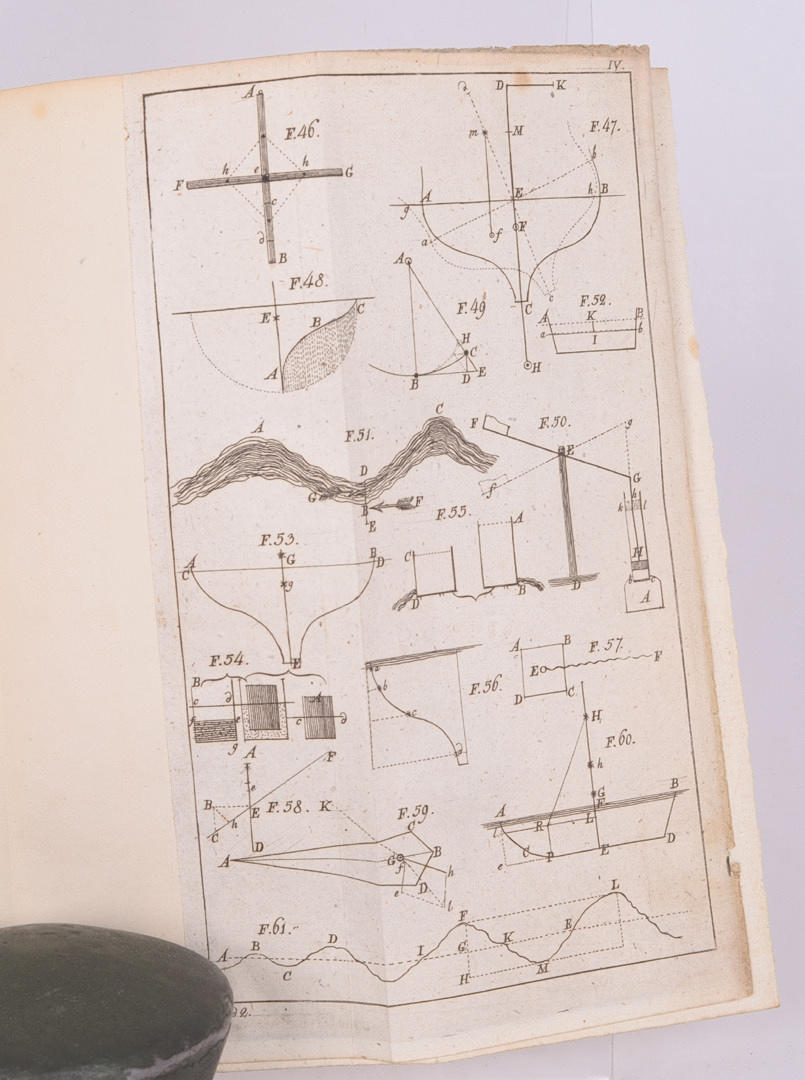 IV.
F.46.
A
h e h
F G
c
B
F.47.
D K
m M
b
A E h B
g
a F
f
c
C
H
F.48.
E
B C
A
F.49
A
H
C
B D E
F.52.
A K B
a b
I
F.51.
A C
D
G F
B
E
F.50.
F E g
f G
h
k l
H
D A
F.55.
A
C
D B
F.53.
A G B
C D
g
E
F.54.
B
c A
f e c
g
F.56.
a
b
c
F.57.
A B
E F
D C
F.58.
A F
e
B E
h
C D
F.59.
K
C
A G B
f h
D
e
l
F.60.
H
h
G
A F B
l R L
C
e P E D
F.61.
A B D I F G K E L
C H M
2.